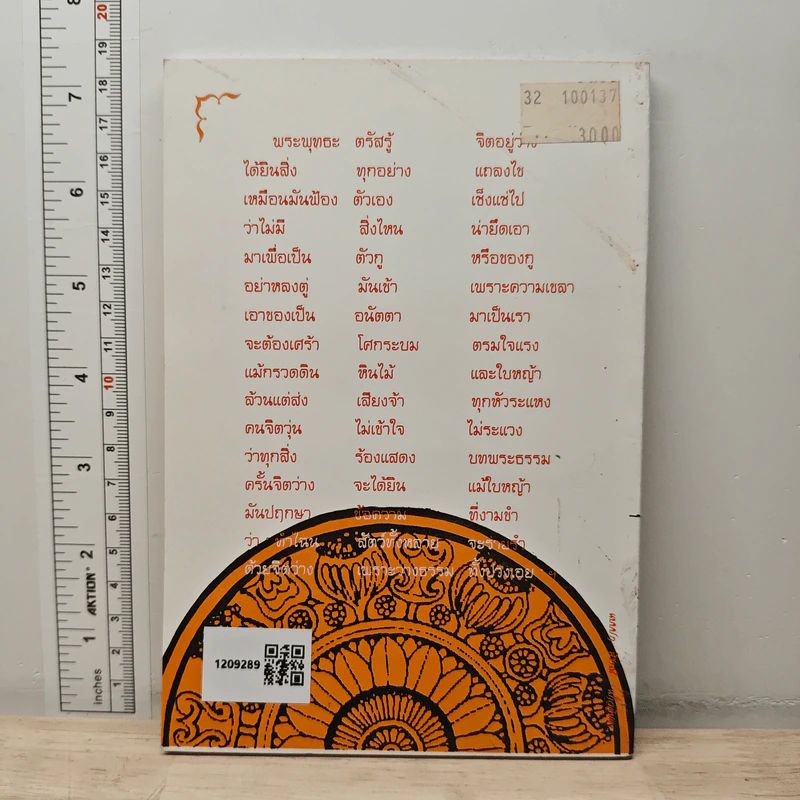 32 100137
3000
พระพุทธะ ตรัสรู้ จิตอยู่ว่าง
ได้ยินสิ่ง ทุกอย่าง แถลงไข
เหมือนมันฟ้อง ตัวเอง เซ็งแซ่ไป
ว่าไม่มี สิ่งไหน น่ายึดเอา
มาเพื่อเป็น ตัวกู หรือของกู
อย่าหลงตู่ มันเข้า เพราะความเขลา
เอาของเป็น อนัตตา มาเป็นเรา
จะต้องเศร้า โศกระบม ตรมใจแรง
แม้กรวดดิน หินไม้ และใบหญ้า
ล้วนแต่ส่ง เสียงจ้า ทุกหัวระแหง
คนจิตวุ่น ไม่เข้าใจ ไม่ระแวง
ว่าทุกสิ่ง ร้องแสดง บทพระธรรม
ครั้นจิตว่าง จะได้ยิน แม้ใบหญ้า
มันปฤกษา ข้อความ ที่งามขำ
ว่า ทำไฉน สัตว์ทั้งหลาย จะรายรำ
ด้วยจิตว่าง เพราะวางธรรม ทั้งปวงเอย ฯ
1209289
8
7
6
5
4
3
2
1
inches
AKTION
20
19
18
17
16
15
14
13
12
11
10
9
8
7
6
5
4
3
2
1